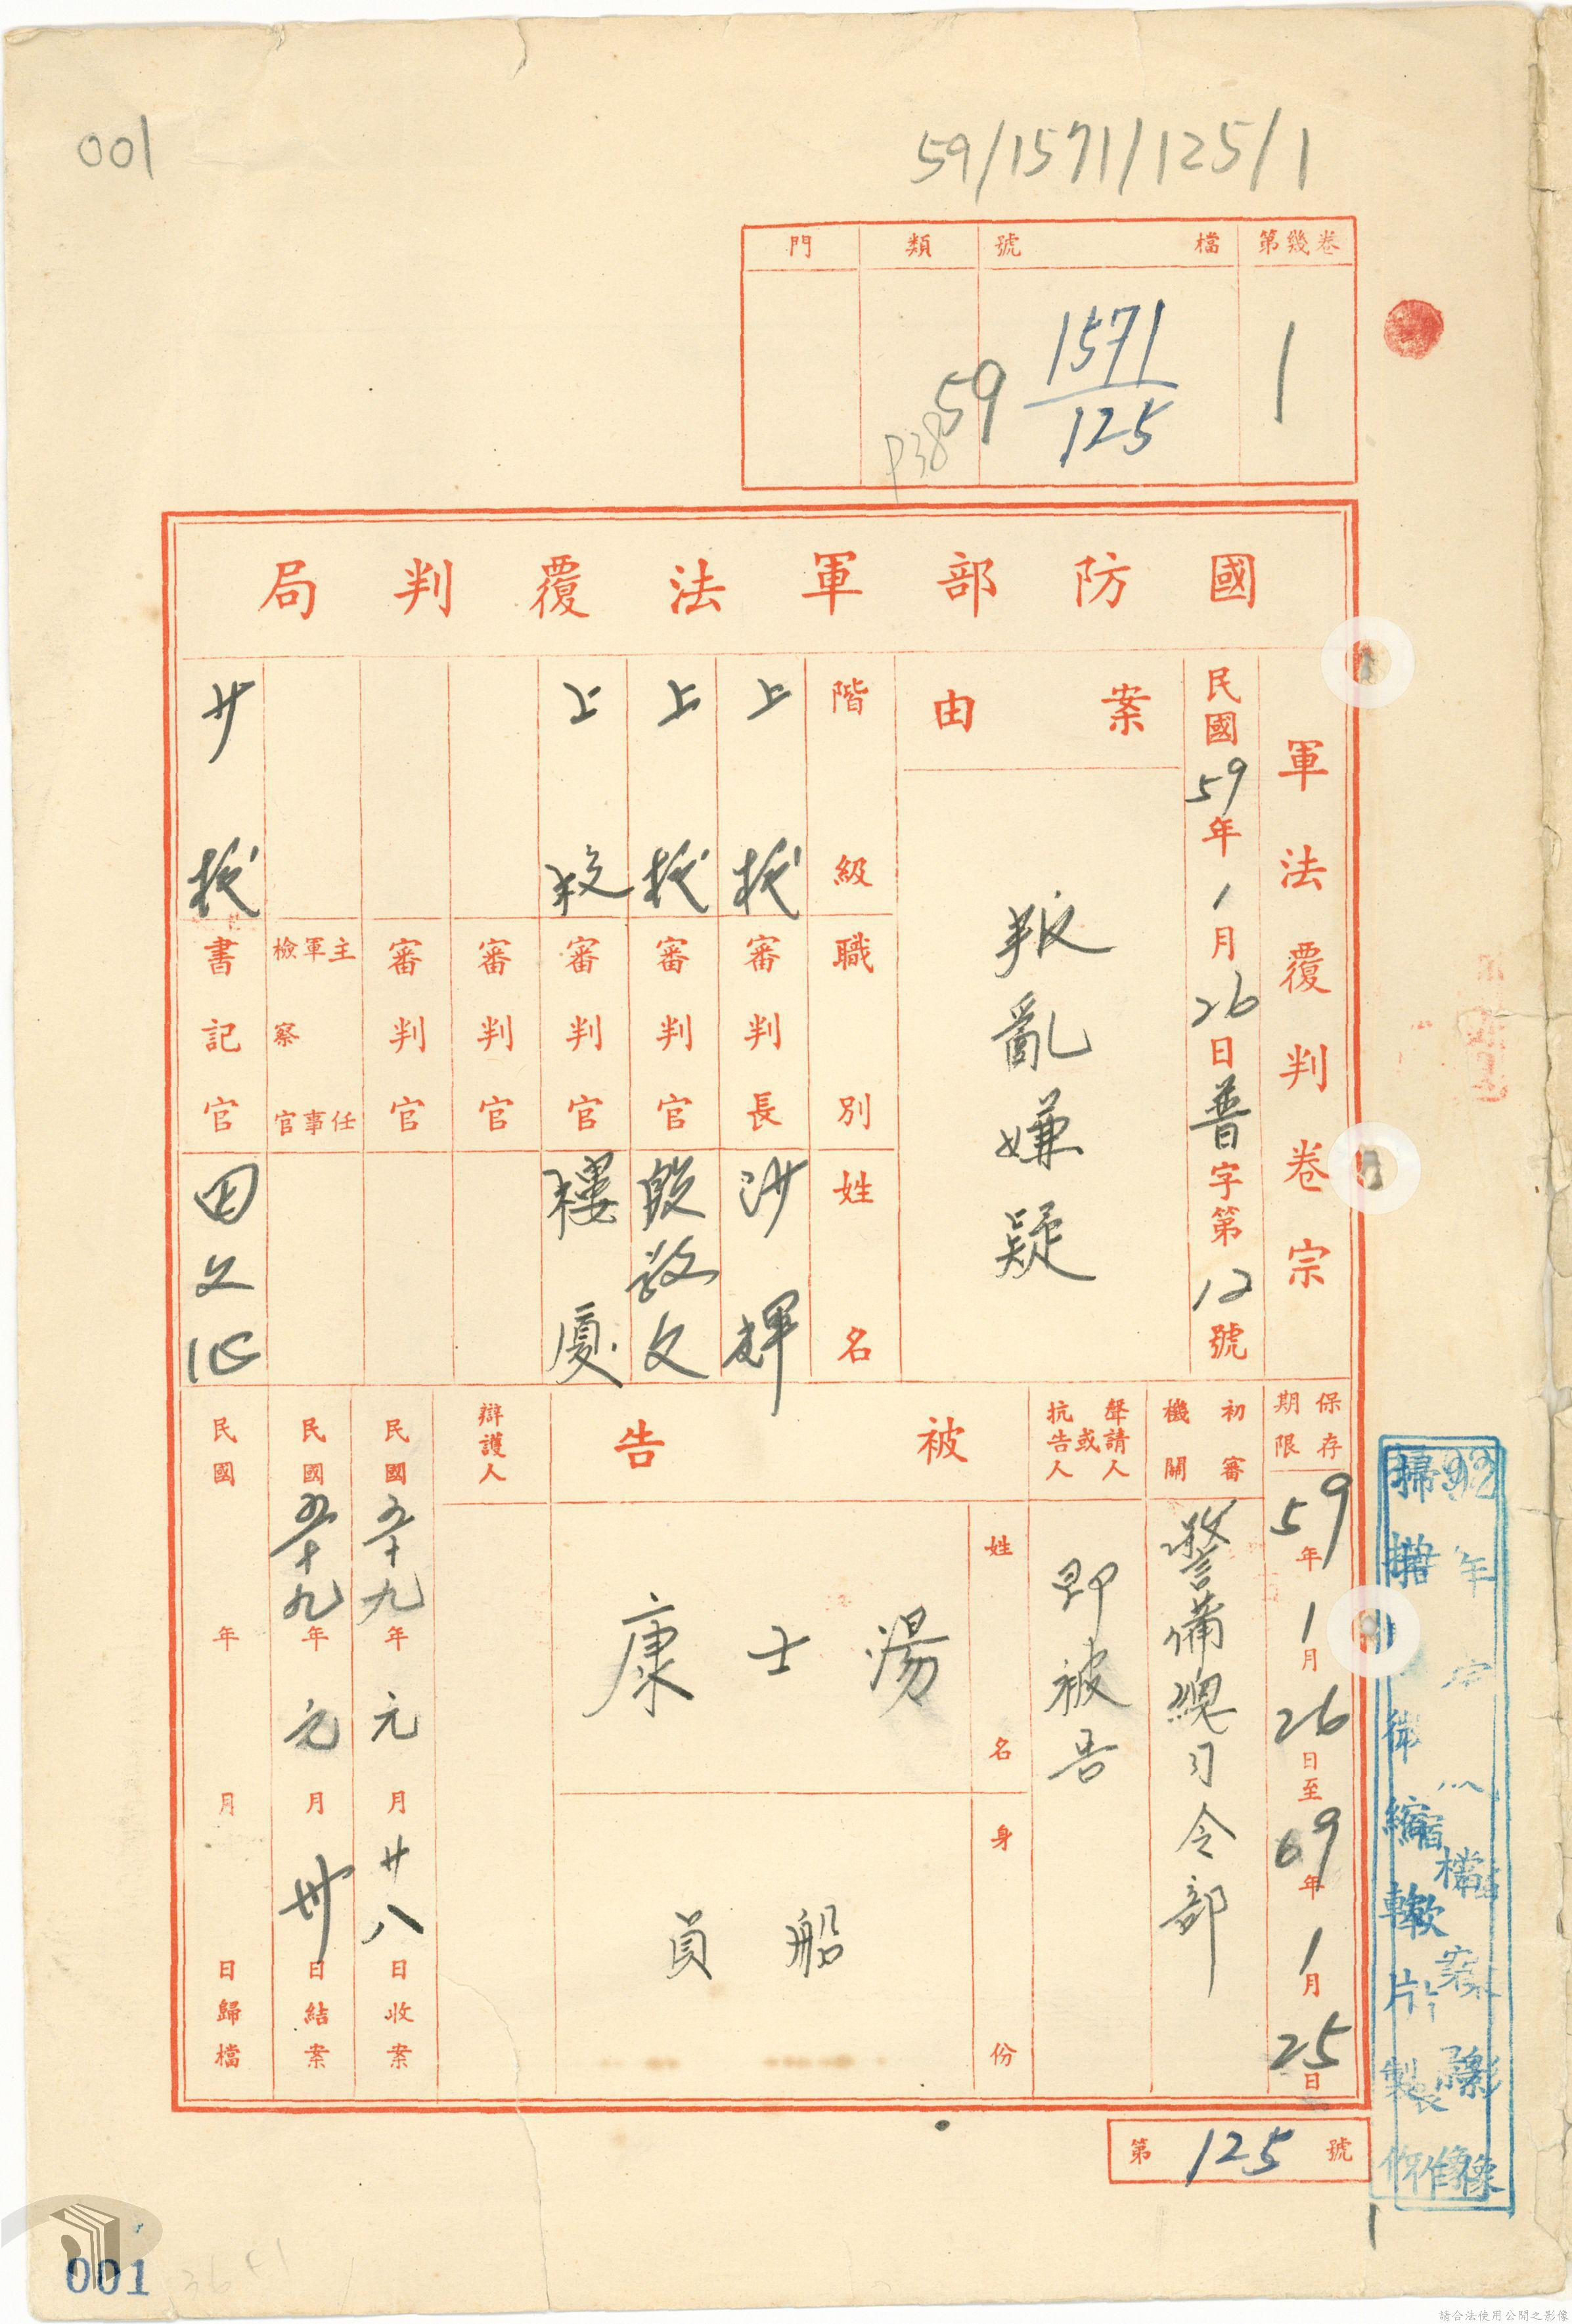 001
59/1571/125/1
第幾卷
1
檔號
1571
125
類
59
P38
門
國防部軍法覆判局
軍法覆判卷宗
民國59年1月26日普字第12號
案由
叛亂嫌疑
階級 職別 姓名
上校 審判長 沙輝
上校 審判官 殷敬文
上校 審判官
審判官
審判官
主任軍事檢察官
少校 書記官 田文
保存期限
59年1月26日至69年1月25日
初審機關
警備總司令部
聲請人或抗告人
即被告
被告
姓名
湯士康
身份
船員
辯護人
民國五十九年元月廿八日收案
民國五十九年元月卅日結案
民國 年 月 日歸檔
第125號
檔案影像
掃描縮片製作
1
001
請合法使用公開之影像